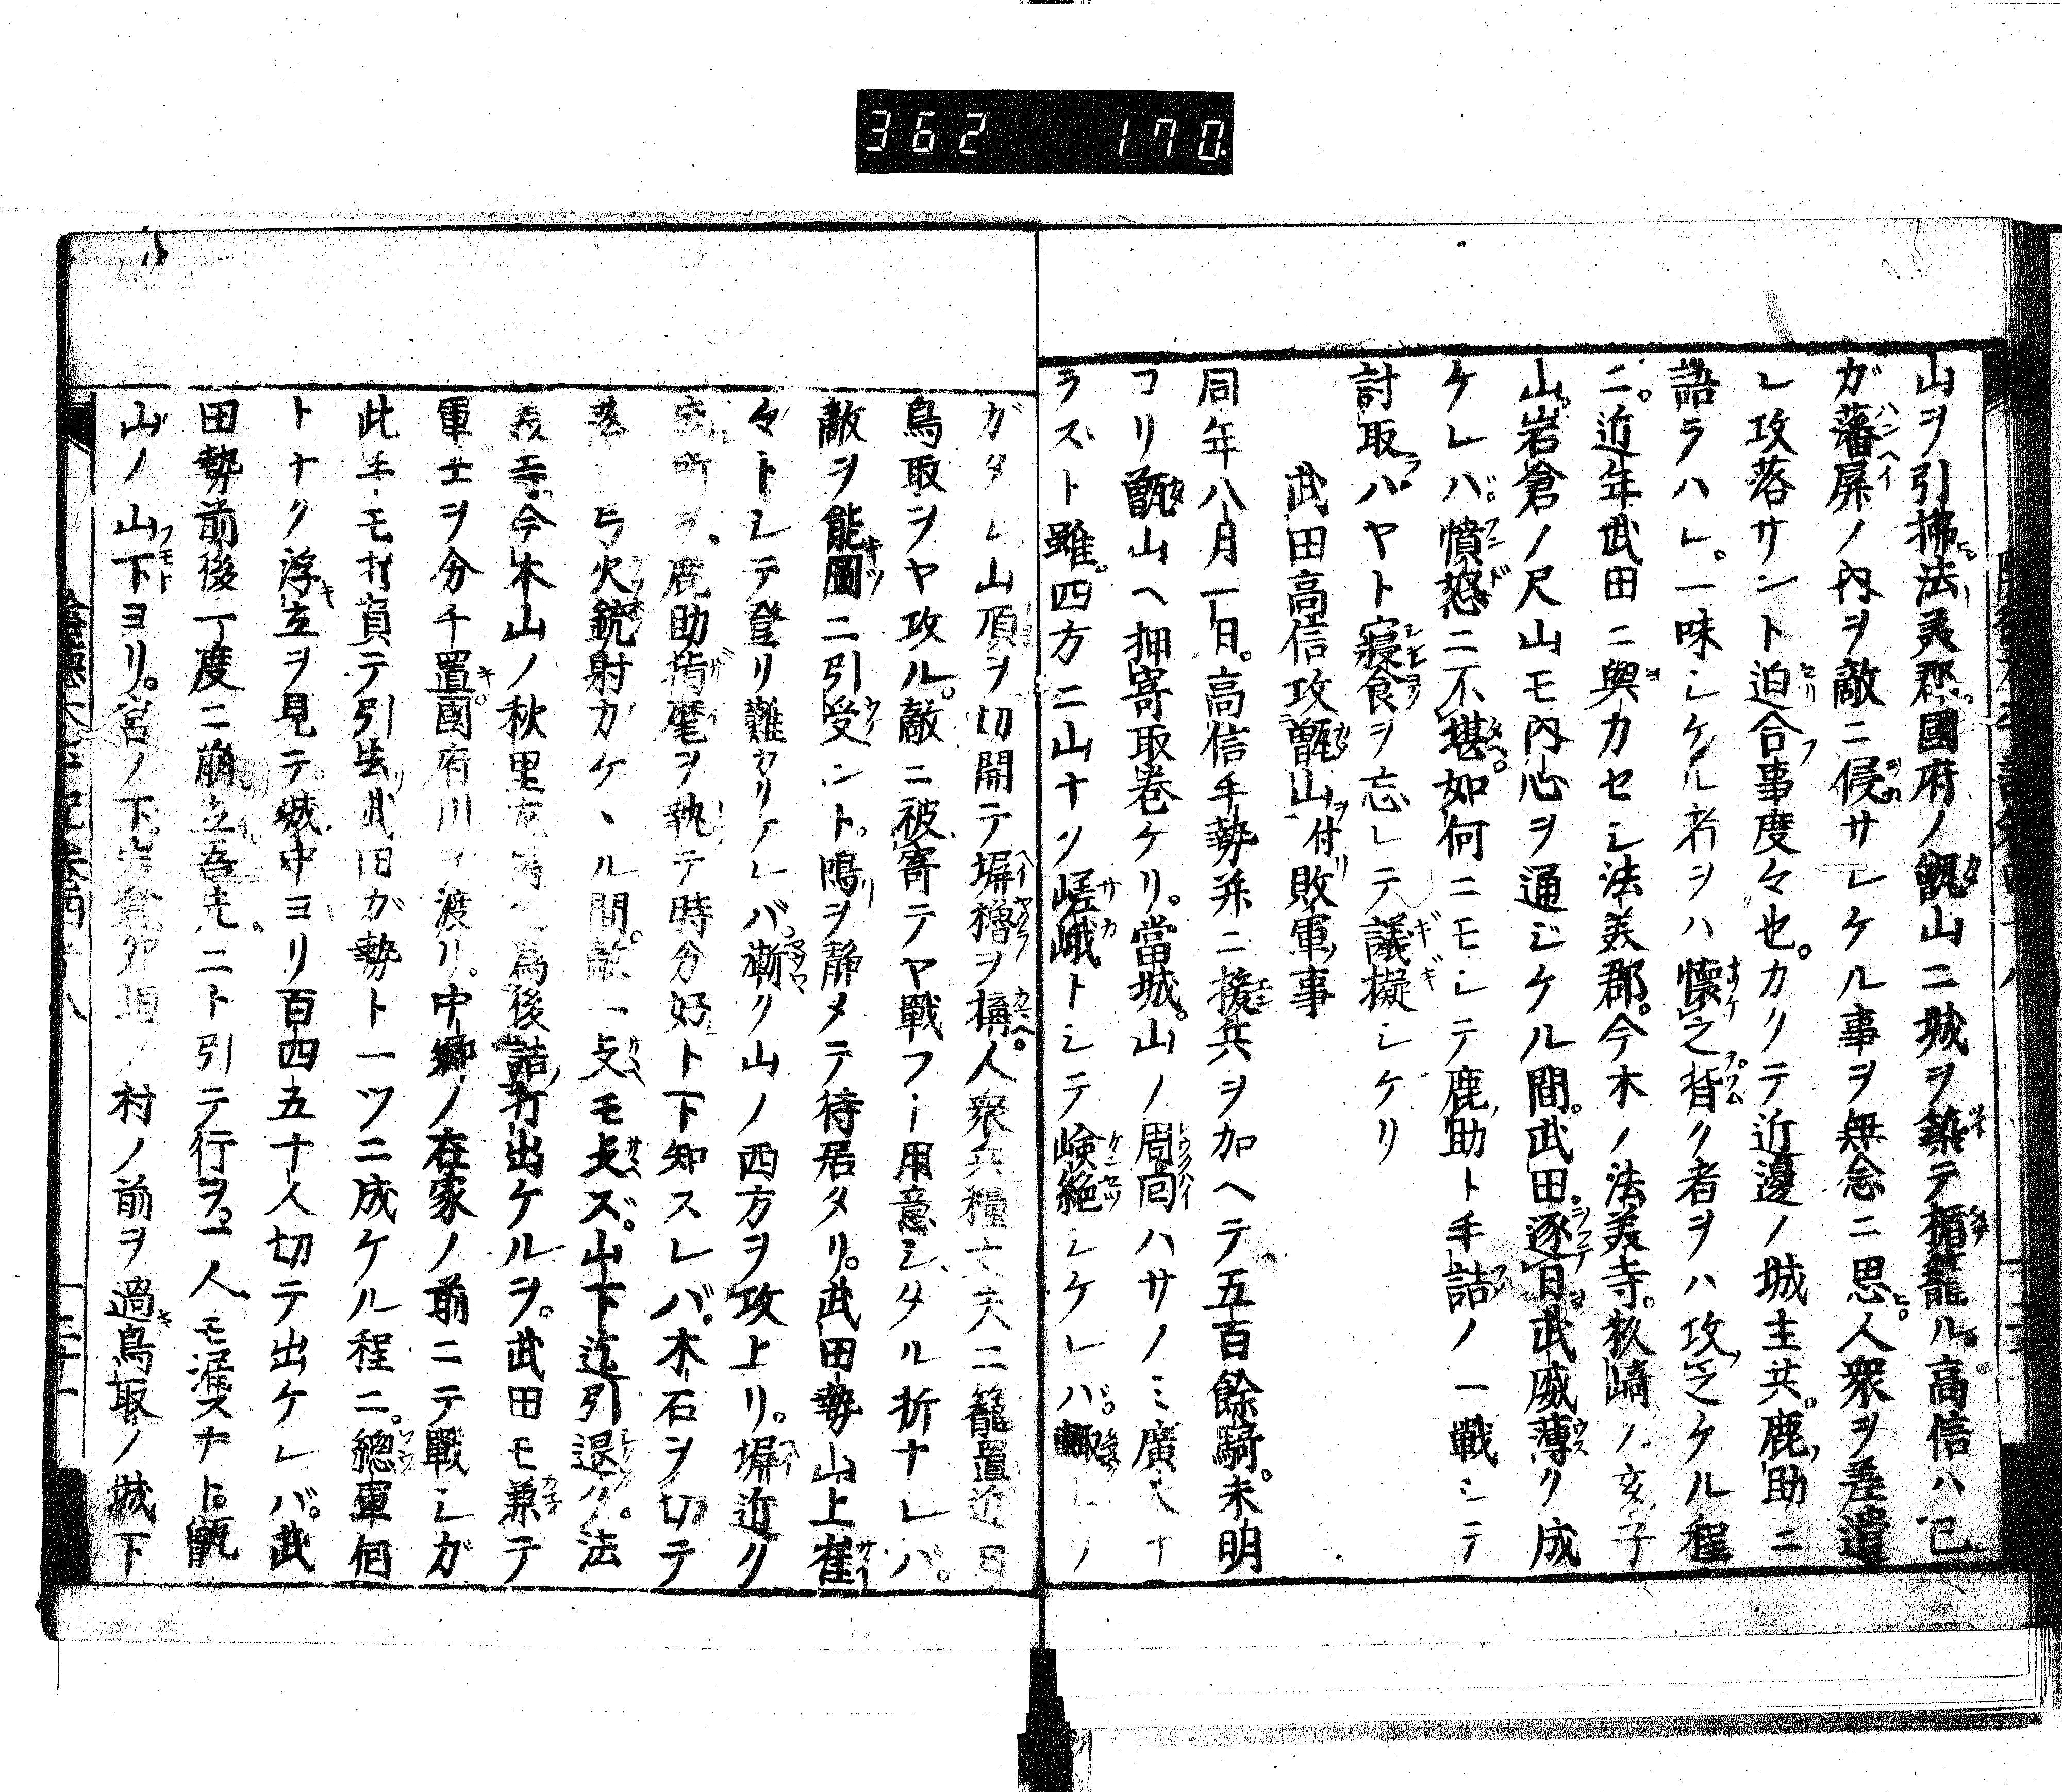 362 170
山ヲ引拂法美郡國府ノ甑山ニ城ヲ築テ楯籠ル高信ハ已
ガ藩屏ノ内ヲ敵ニ侵サレケル事ヲ無念ニ思人衆ヲ差遣
レ攻落サント迫合事度々也カリテ近邊ノ城主共鹿助ニ
語ラハレ一味シケル者ヲハ懷之背ク者ヲハ攻之ケル程
ニ近年武田ニ與力セシ法美郡今木ノ法美寺荻崎ノ亥子
山岩倉ノ尺山モ内心ヲ通ジケル間武田逐日武威薄ク成
ケレハ憤怒ニ不堪如何ニモシテ鹿助ト手詰ノ一戰シテ
討取ハヤト寢食ヲ忘レテ議擬シケリ
武田高信攻甑山付敗軍事
同年八月一日高信手勢并ニ援兵ヲ加ヘテ五百餘騎未明
コリ甑山ヘ押寄取巻ケリ當城山ノ周囘ハサノミ廣大ナ
ラズト雖四方ニ山ナク嵯峨トシテ峻絶シケレハ輙
ガタレ山頂ヲ切開テ塀櫓ヲ搆人衆兵糧丈夫ニ籠置近日
鳥取ヲヤ攻ル敵ニ被寄テヤ戰フト用意シタル折ナレバ
敵ヲ能圖ニ引受ント鳴ヲ静メテ待居タリ武田勢山上崔
々トレテ登リ難カリケレバ漸ク山ノ西方ヲ攻上リ塀近ク
鹿助指麾ヲ執テ時分好ト下知スレバ木石ヲ切テ
落シ弓火銃射カケヽル間敵一支モ支ズ山下迄引退ク法
美寺今木山ノ秋里 爲後詰打出ケルヲ武田モ兼テ
軍士ヲ分千置國府川ヲ渡リ中郷ノ在家ノ前ニテ戰シガ
此手モ打負テ引去武田が勢ト一ツニ成ケル程ニ總軍何
トナク浮立ヲ見テ城中ヨリ百四五十人切テ出ケレバ武
田勢前後一度ニ崩立吾先ニト引テ行ヲ一人モ漏スナト甑
山ノ山下ヨリ宮ノ下岩倉卯垣ノ村ノ前ヲ過鳥取ノ城下